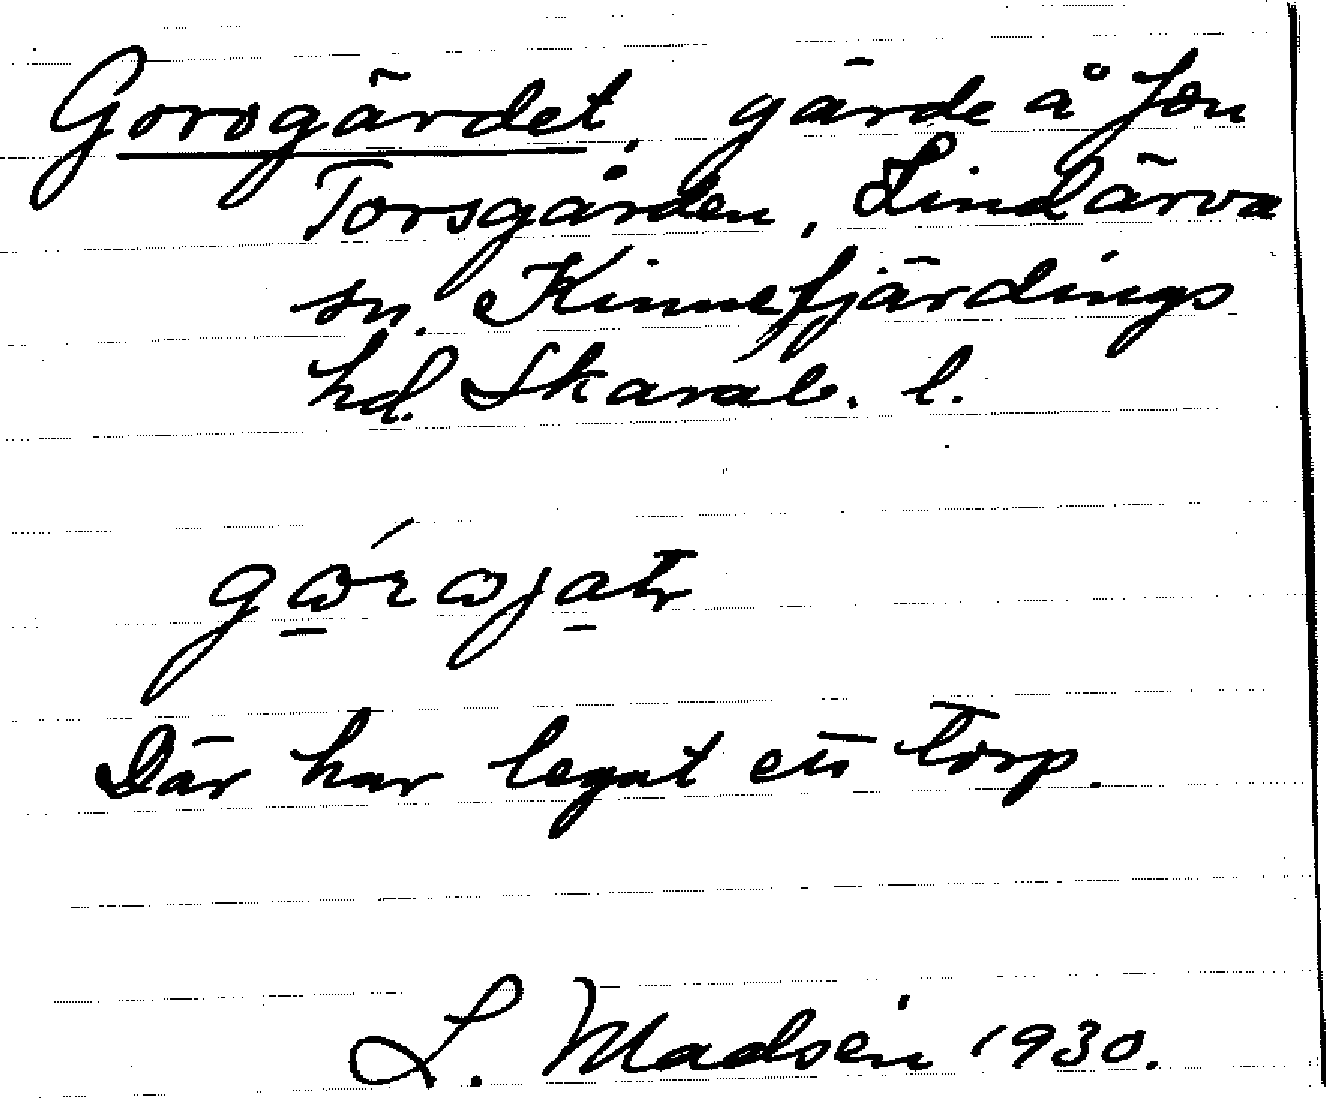 Gorogärdet, gärde å fsn
Torsgården, Lindärva
sn. Kinnefjärdings
hd. Skarab. l.
Där har legat ett torp.
L. Madsén 1930.